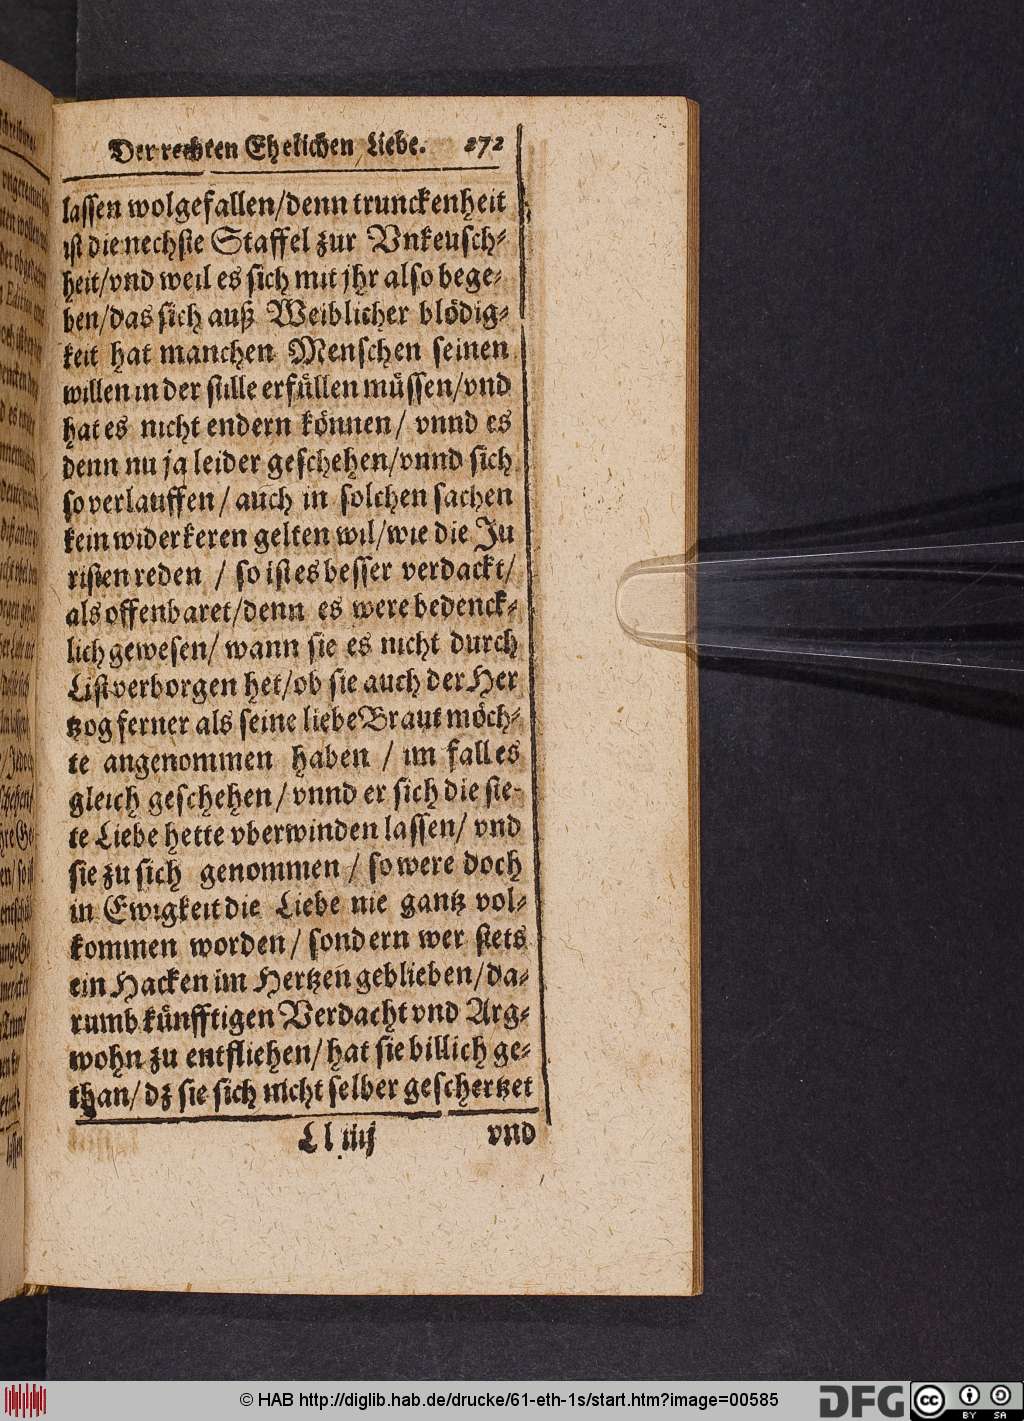 Der rechten Ehelichen Liebe. 272
lassen wolgefallen/denn trunckenheit
ist die nechste Staffel zur Vnkeusch-
heit/vnd weil es sich mit jhr also bege-
ben/das sich auß Weiblicher blödig-
keit hat manchen Menschen seinen
willen in der stille erfüllen müssen/vnd
hat es nicht endern können/ vnnd es
denn nu ja leider geschehen/vnnd sich
so verlauffen/ auch in solchen sachen
kein widerkeren gelten wil/wie die Ju
risten reden / so ist es besser verdackt/
als offenbaret/denn es were bedenck-
lich gewesen/ wann sie es nicht durch
List verborgen het/ob sie auch der Her
tzog ferner als seine liebe Braut möch-
te angenommen haben / im fall es
gleich geschehen/vnnd er sich die ste-
te Liebe hette vberwinden lassen/ vnd
sie zu sich genommen / so were doch
in Ewigkeit die Liebe nie gantz vol-
kommen worden/ sondern wer stets
ein Hacken im Hertzen geblieben/da-
rumb künfftigen Verdacht vnd Arg-
wohn zu entfliehen/hat sie billich ge-
than/dz sie sich nicht selber geschertzet
Ll iiij vnd
© HAB http://diglib.hab.de/drucke/61-eth-1s/start.htm?image=00585
DFG
cc BY SA